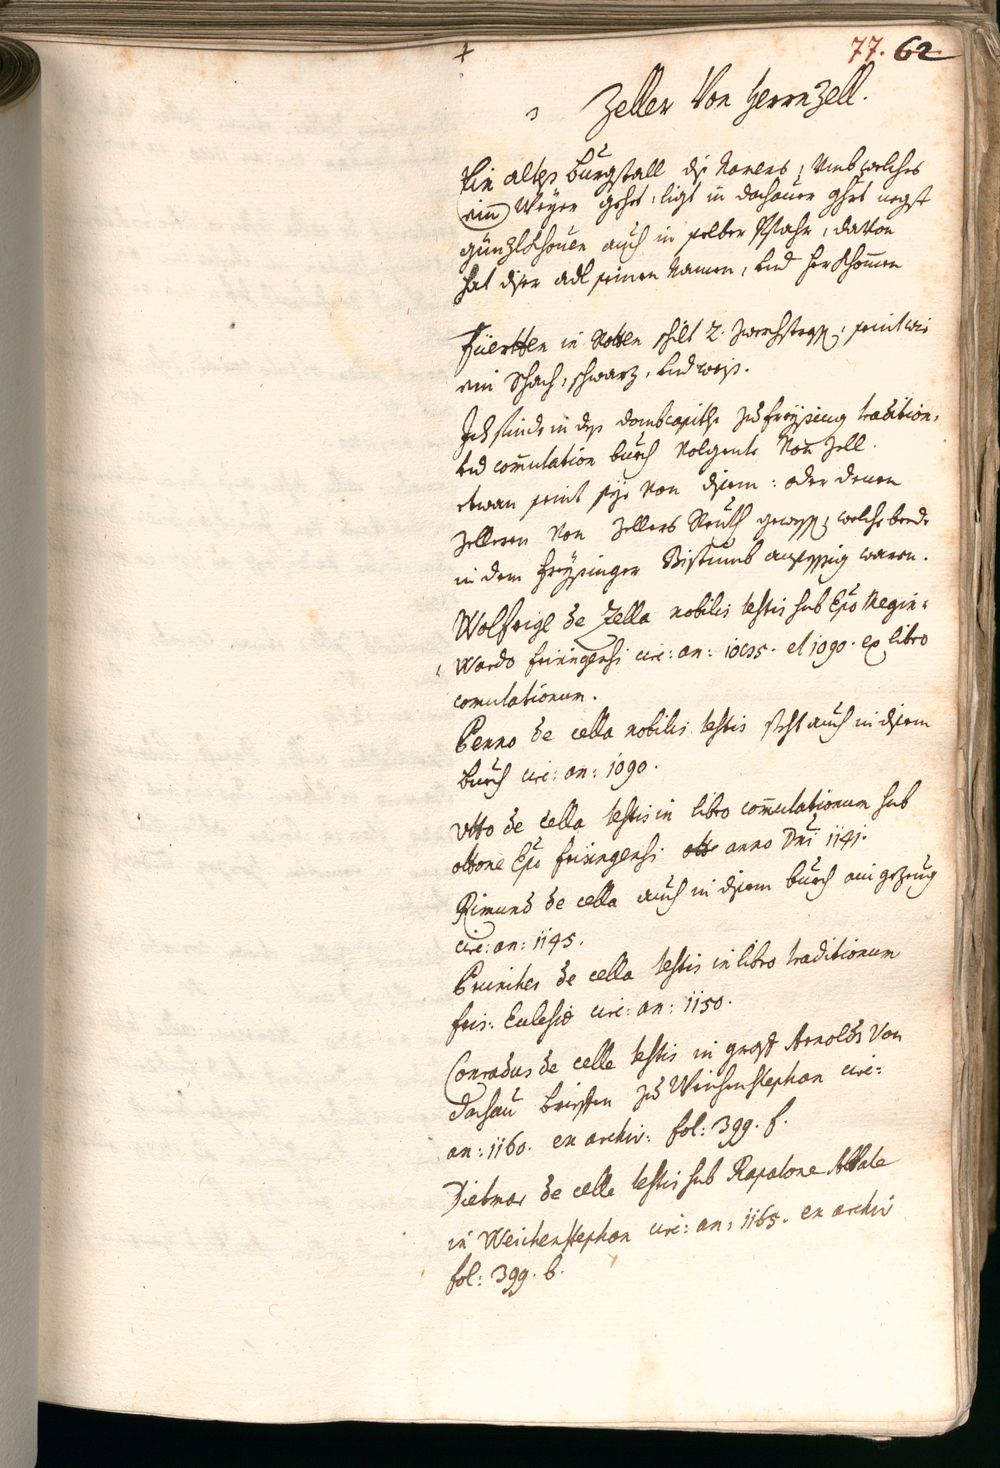 77. 62
Zeller Von Herrnzell.
Ein altes Burgstall diss Namens, Umb welches
ein Weyer gehet, ligt in dachauer ghrt negst
günzlkhouen auch in selber Pfahr, dauon
hat diser adl seinen Namen, und herkhomen
Füertten in Rotten schilt 2. zwerchstrass, seint wie
ein Schach, schwarz, und weiss.
Ich finde in dess dombcapitls zu freysing tradition,
und comutation buech Volgente Von Zell.
etwan seint sye Von disem: oder denen
Zelleren Von Zellers Reuth gewest, welche beede
in dem freysinger Bistumb ansessig waren.
Wolfrigl de Zella nobilis testis sub Epo Megin-
wardo frisingensi circ: an: 1085. et 1090. ex libro
comutationum.
Penno de cella nobilis testis steht auch in disem
buech circ: an: 1090.
Otto de cella testis in libro comutationum sub
ottone Epo frisingensi anno Dni 1141.
Rimund de cella auch in disem buech ain gezeug
circ: an: 1145.
de cella testis in libro traditionum
fris: Eclesiae circ: an: 1150.
Conradus de celle testis in graf Arnolds Von
dachau brieffen zu Weichenstephan circ:
an: 1160. ex archiv: fol: 399. f.
Dietmar de celle testis sub Rapatone Abbate
in Weichenstephan circ: an: 1165. ex archiv
fol: 399. b.